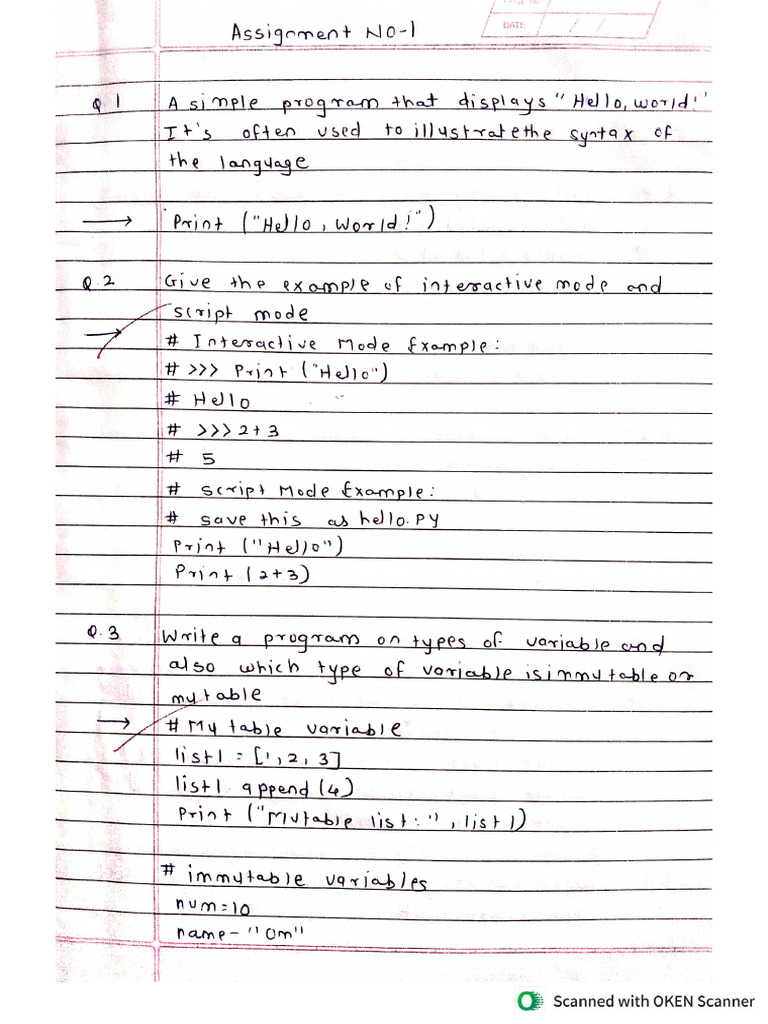 Assignment NO-1
PAGE NO
DATE / /
Q 1 A simple program that displays "Hello, world!"
It's often used to illustratethe syntax of
the language
→ Print ("Hello, World!")
Q.2 Give the example of interactive mode and
script mode
→ # Interactive Mode Example:
# >>> Print ("Hello")
# Hello
# >>> 2+3
# 5
# Script Mode Example:
# save this as hello.py
Print ("Hello")
Print (2+3)
Q.3 Write a program on types of variable and
also which type of variable is immutable or
mutable
→ # Mutable variable
list1 = [1, 2, 3]
list1 append (4)
Print ("Mutable list:", list1)
# immutable variables
num=10
name- "Om"
Scanned with OKEN Scanner